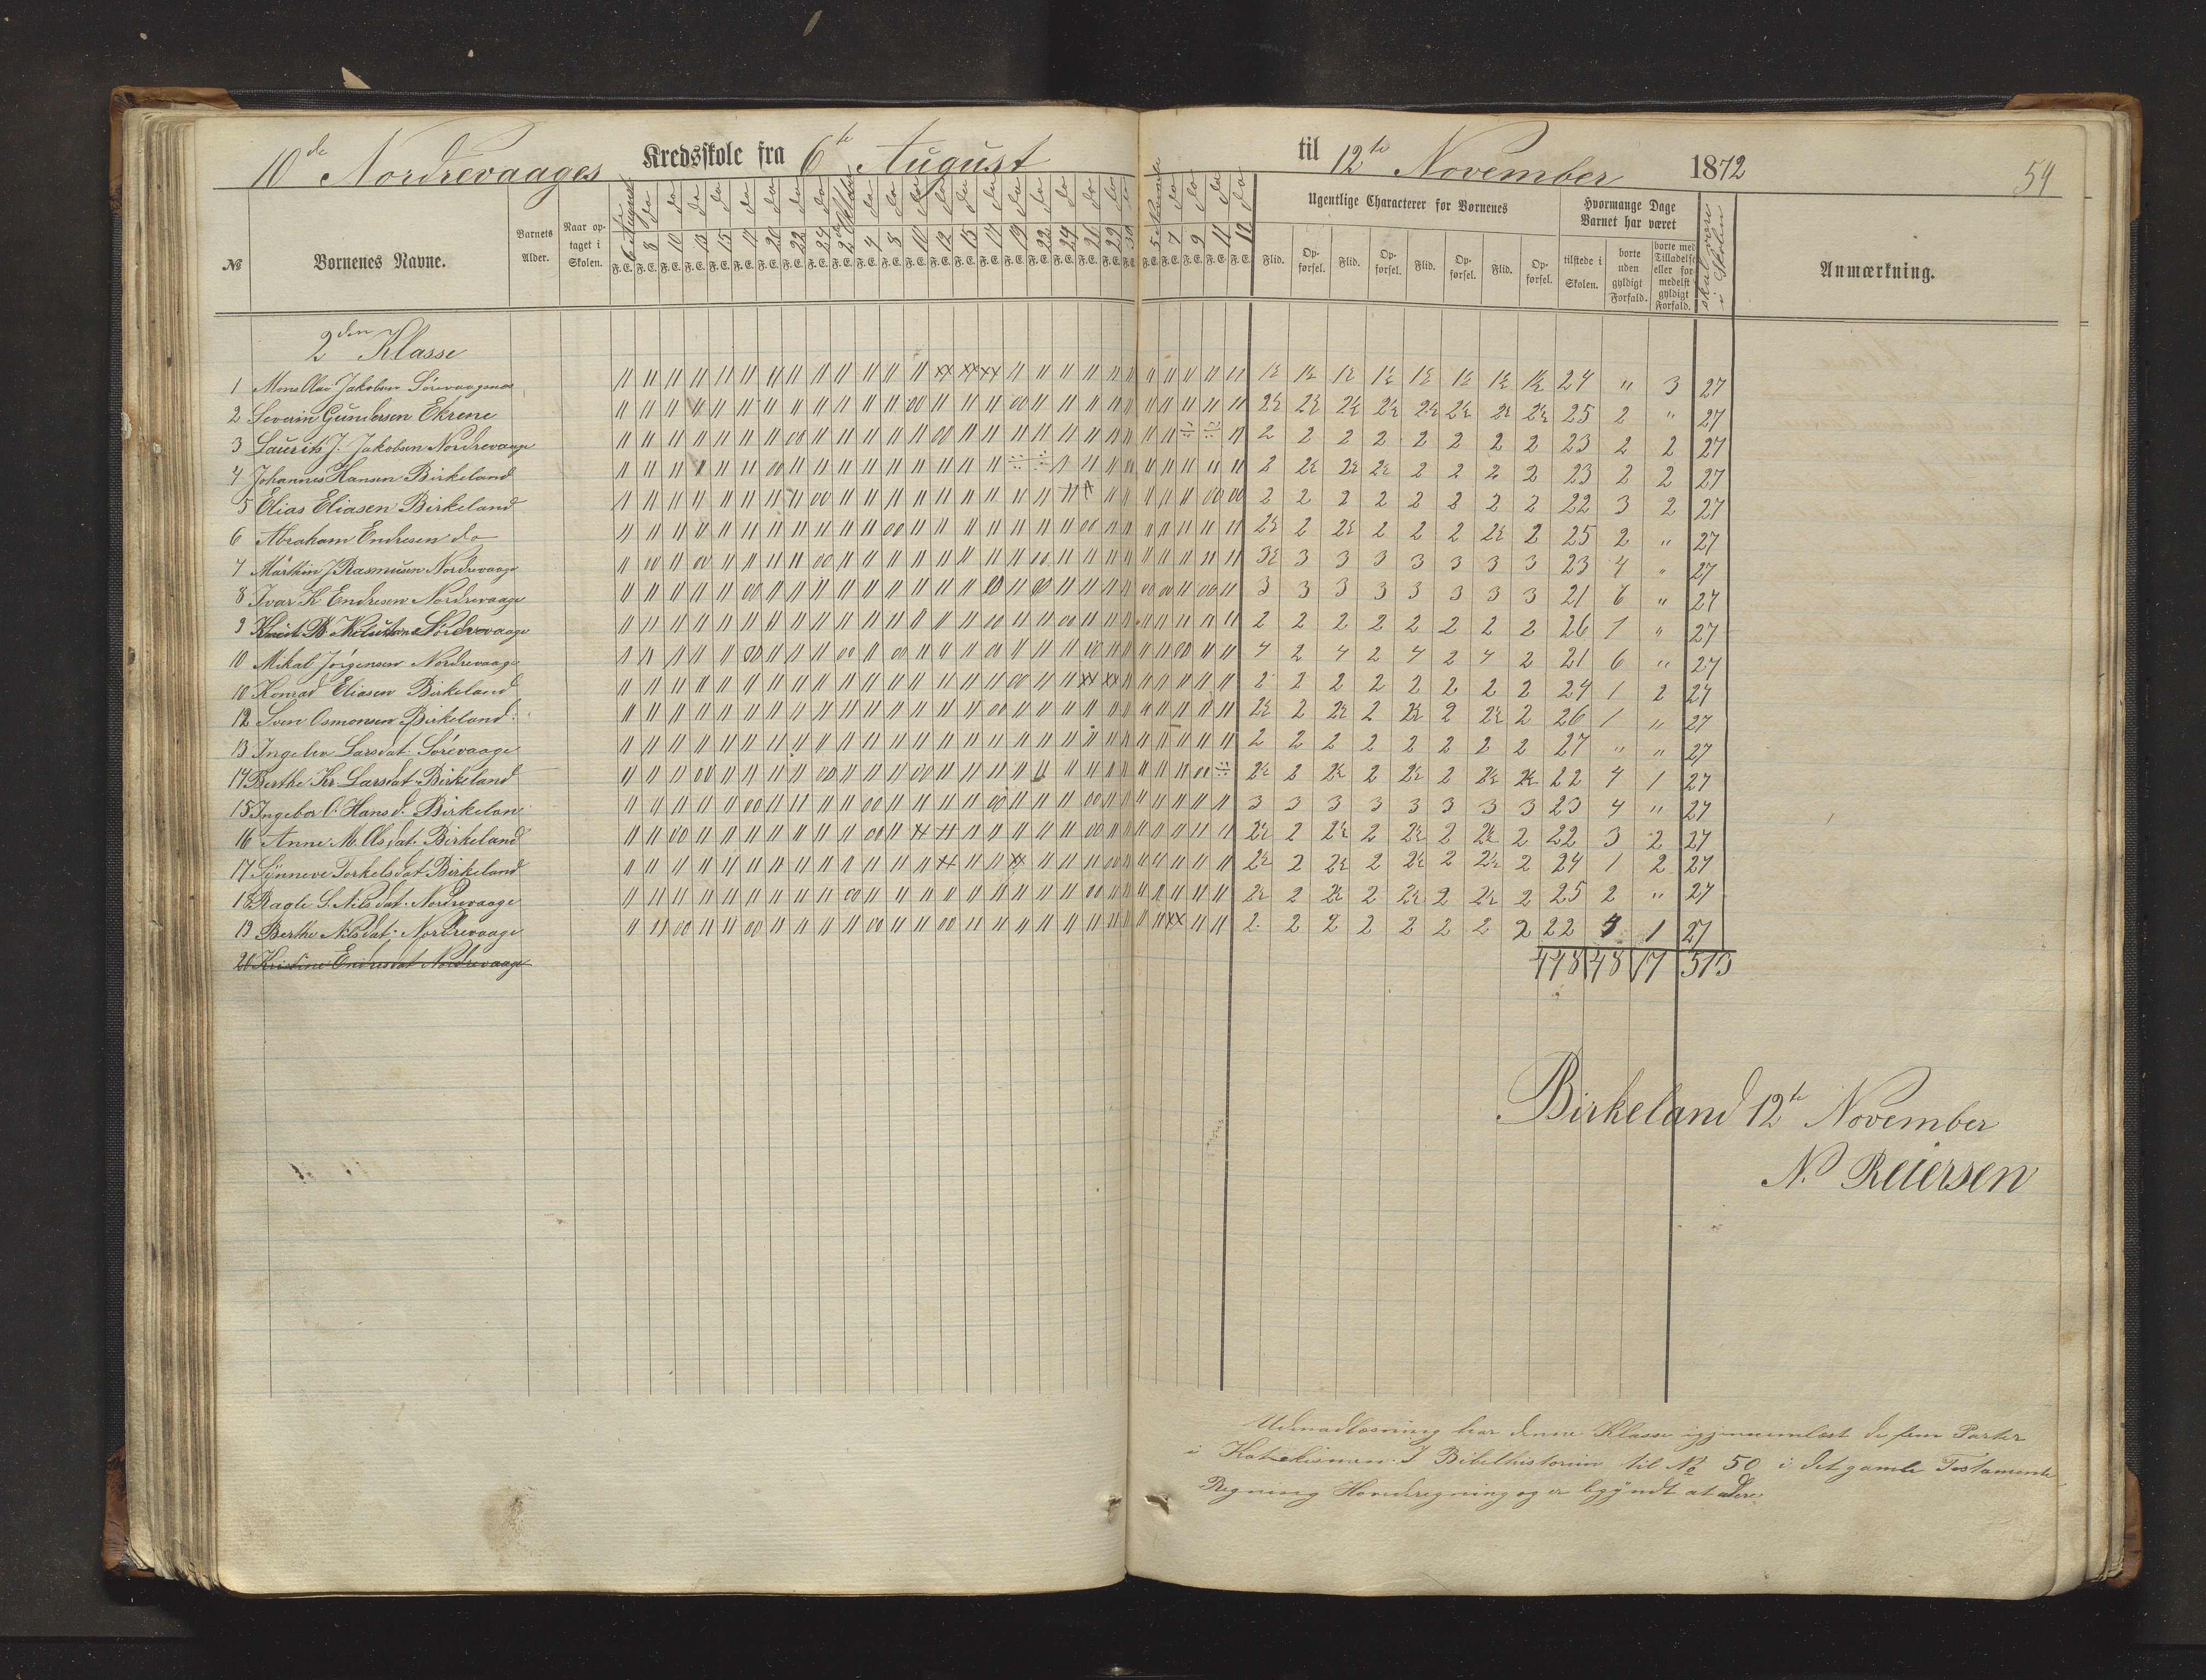 10de Nordrevaages Kredsskole fra 6te August til 12te November 1872
54
№ Børnenes Navne. Barnets Alder. Naar optaget i Skolen. Ugentlige Characterer for Børnenes Hvormange Dage Barnet har været skal være i Skolen Anmærkning.
6te August 8 do 10 do 13 do 15 do 17 do 20 do 22 do 24 do 2 Oktober 4 do 8 do 10 do 12 do 15 do 17 do 19 do 22 do 24 do 26 do 29 do 30 do 5 7 do 9 do 11 do 12 do
Flid. Opførsel. Flid. Opførsel. Flid. Opførsel. Flid. Opførsel. tilstede i Skolen. borte uden gyldigt Forfald. borte med Tilladelse eller formedelst gyldigt Forfald.
2den Klasse
1 Mons Olai Jakobsen 1½ 1½ 1½ 1½ 1½ 1½ 1½ 1½ 24 " 3 27
2 Severin Gundersen Ekrene 2½ 2½ 2½ 2½ 2½ 2½ 2½ 2½ 25 2 " 27
3 Laurits J. Jakobsen Nordrevaage 2 2 2 2 2 2 2 2 23 2 2 27
4 Johannes Hansen Birkeland 2 2½ 2½ 2½ 2 2 2 2 23 2 2 27
5 Elias Eliasen Birkeland 2 2 2 2 2 2 2 2 22 3 2 27
6 Abraham Endresen do 2½ 2 2½ 2 2 2 2½ 2 25 2 " 27
7 Marthin J Rasmusen Nordrevaage 3½ 3 3 3 3 3 3 3 23 4 " 27
8 Ivar K Endresen Nordrevaage 3 3 3 3 3 3 3 3 21 6 " 27
9 Knut B 2 2 2 2 2 2 2 2 26 1 " 27
10 Mikal Jørgensen Nordrevaage 4 2 4 2 4 2 4 2 21 6 " 27
10 Konrad Eliasen Birkeland 2 2 2 2 2 2 2 2 24 1 2 27
12 Sven Osmonsen Birkeland 2½ 2 2½ 2 2½ 2 2½ 2 26 1 " 27
13 Ingeba Larsdat. Sörevaage 2 2 2 2 2 2 2 2 27 " " 27
14 Berthe Kr. Larsdat. Birkeland 2½ 2 2½ 2 2½ 2 2½ 2½ 22 4 1 27
15 Ingebor O. Hansd. Birkelan 3 3 3 3 3 3 3 3 23 4 " 27
16 Anne M. Olsdat. Birkeland 2½ 2 2½ 2 2½ 2 2½ 2 22 3 2 27
17 Synneve Torkelsdat Birkeland 2½ 2 2½ 2 2½ 2 2½ 2 24 1 2 27
18 Ragle S. Nilsdat. Nordrevaage 2½ 2 2½ 2 2½ 2 2½ 2 25 2 " 27
19 Berthe Nilsdat. Nordrevaage 2 2 2 2 2 2 2 2 22 4 1 27
20 Kristine Endresdat Nordrevaage 448 48 17 513
Birkeland 12te November
N. Reiersen
Udenadlæsning har denne Klasse igjennemlæst de fem Parter
i Katekismen. I Bibelhistorien til № 50 i det gamle Testamente.
Regning Hovedregning og er begyndt at adere